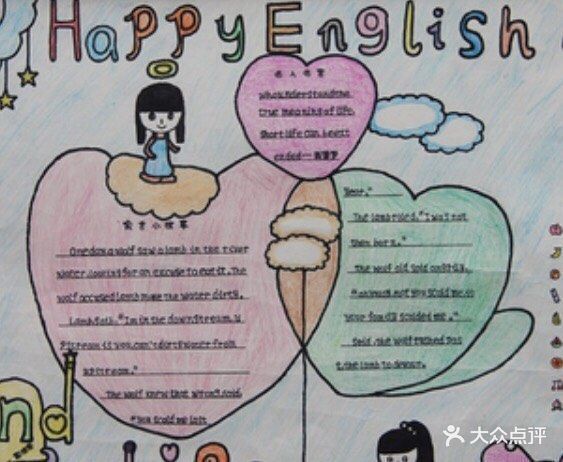 Happy English
名人名言
Who understands the
true meaning of life,
short life can be est
ended
寓言小故事
One day a wolf saw a lamb in the river
water, looking for an excuse to eat it. The
wolf accused lamb make the water dirty.
Lamb "I'm in the downstream, U
pstream is you, can't dirty water from
upstream."
The wolf knew that wrong said,
"You scold me last
Year."
The lamb "I was not
then born."
The wolf said
not you scold me, is
your family scolded me."
Said, the wolf rushed pas
t, the lamb to
nd
大众点评